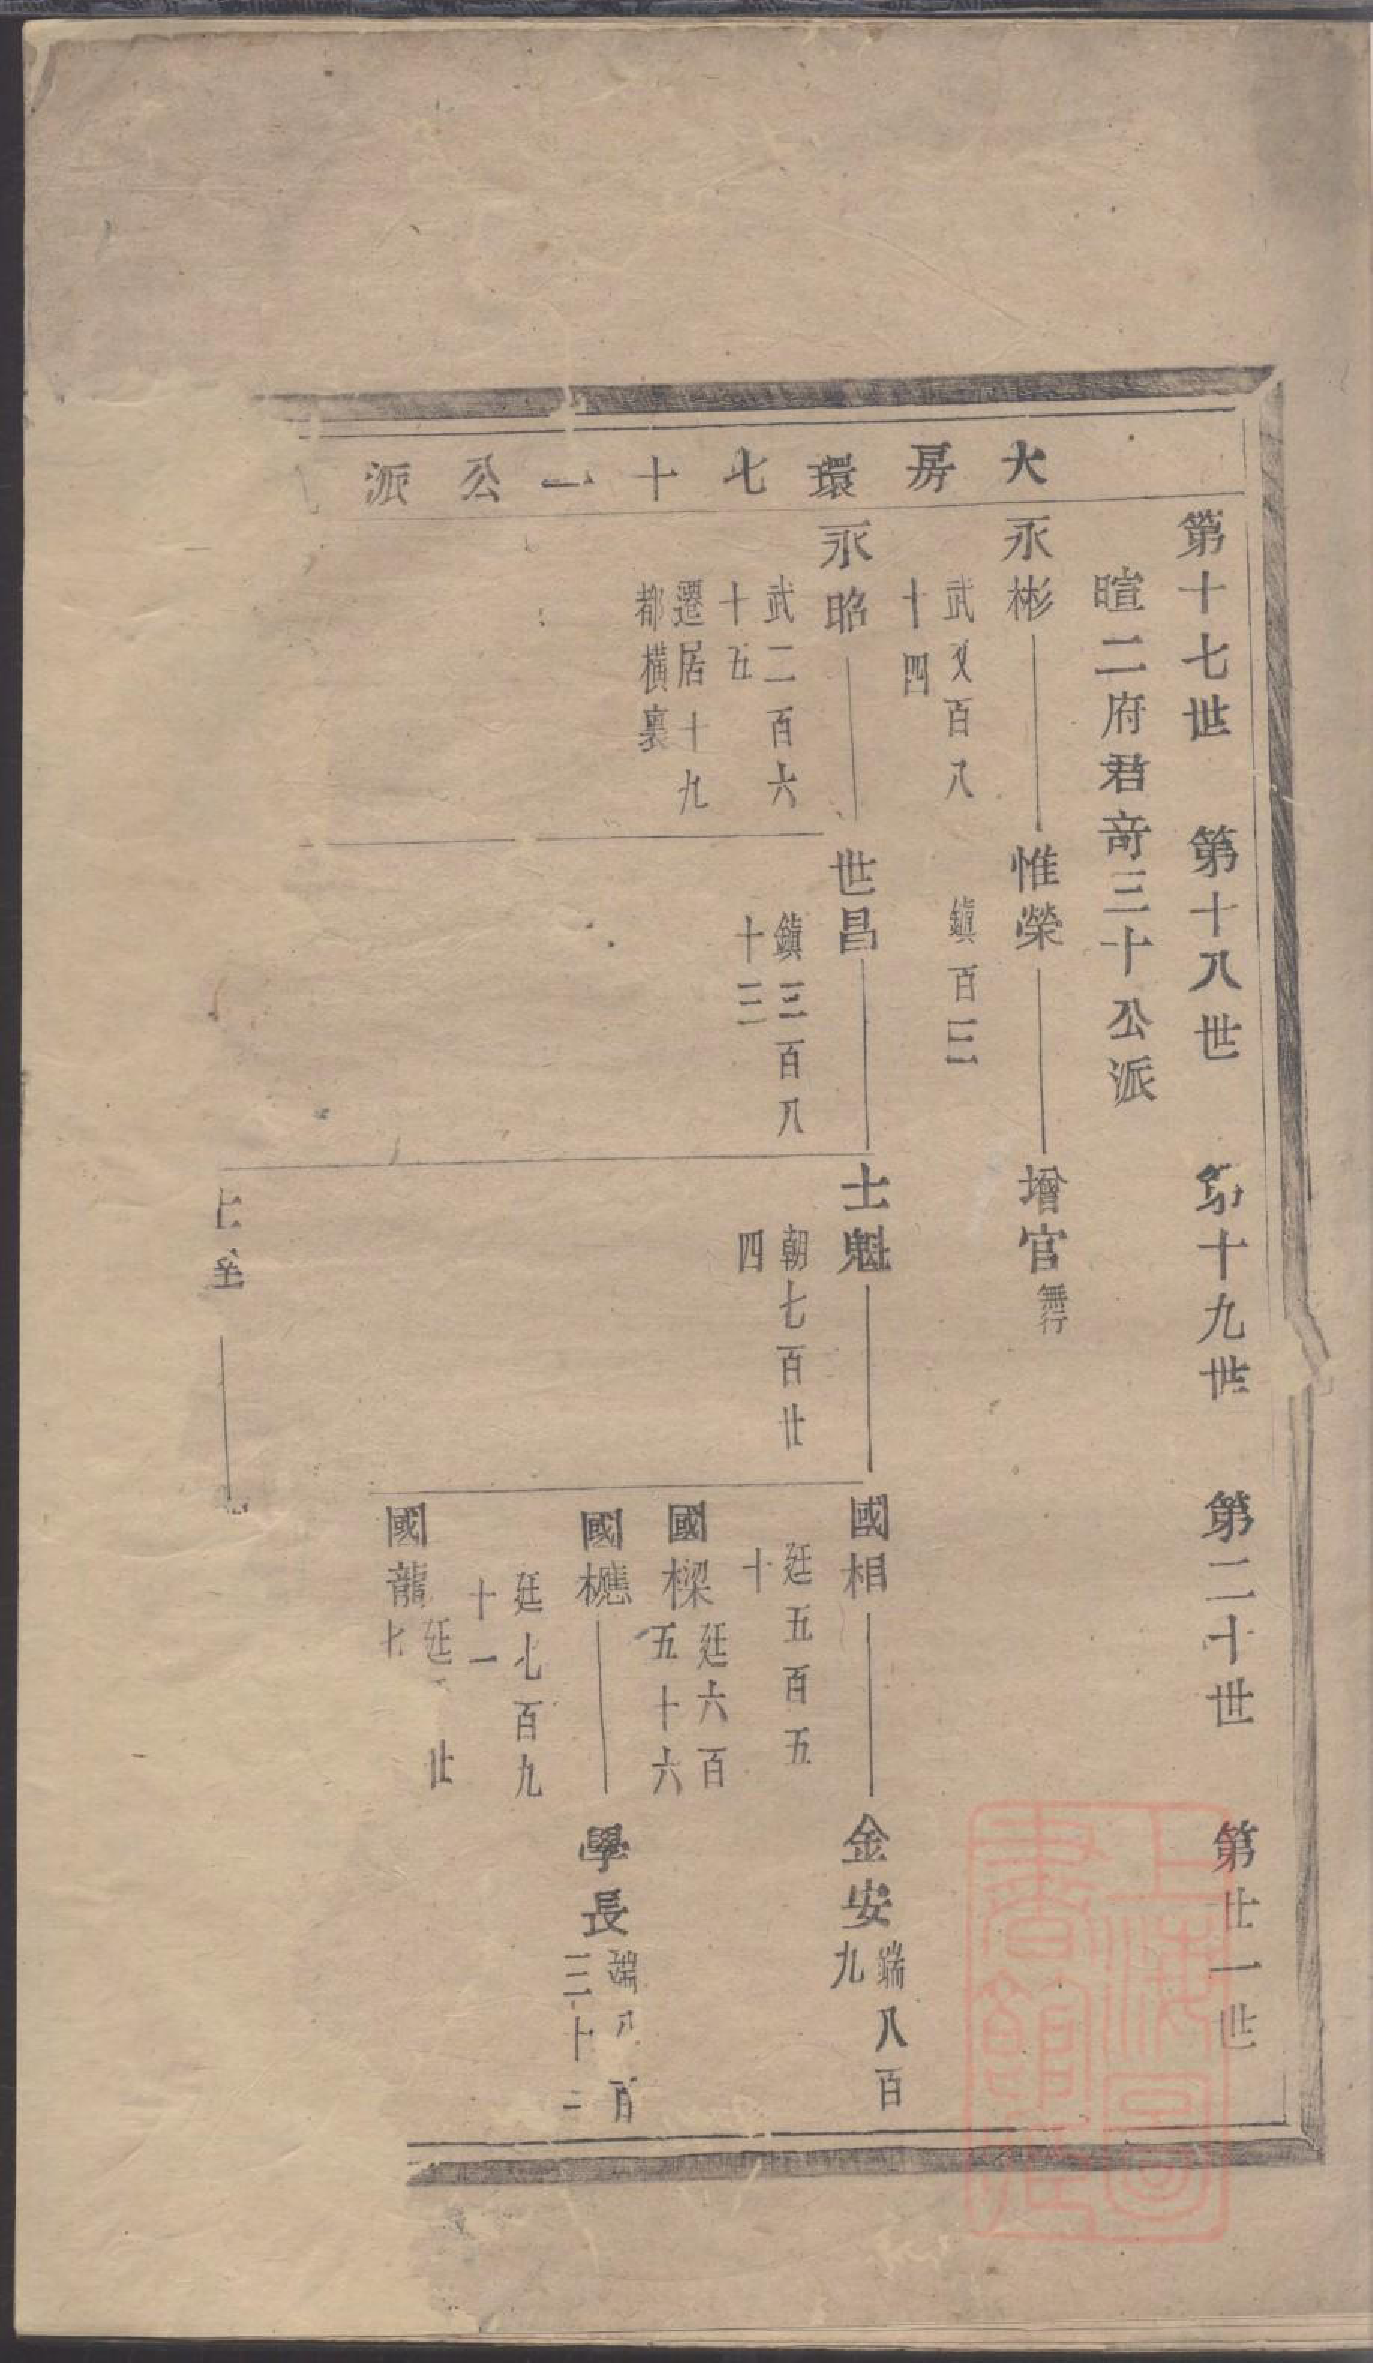 大房環七十一公派
第十七世 第十八世 第十九世 第二十世 第廿一世
暄二府君奇三十公派
永彬 惟榮 增官 無行
武又百八
十四
鎮百三二
永昭 世昌 士魁 國相 金安
端八百
九
武二百六
十五
鎮三百八
十三
朝七百廿
四
廷五百五
十
遷居十九
都橫裏
國樑
廷六百
五十六
國櫶 學長
端八百
三十二
廷七百九
十一
國龍
廷 廿
七
士奎
上海圖書館藏